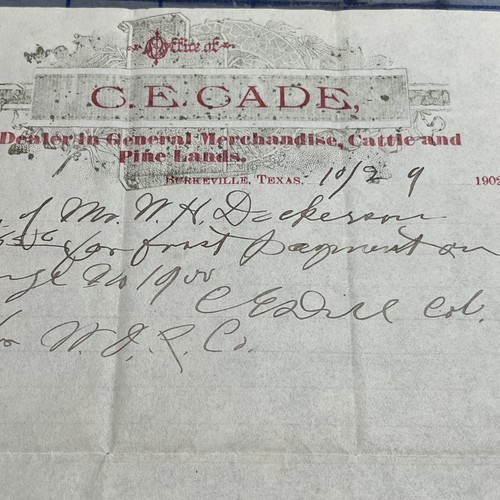 Office of
C. E. CADE,
Dealer in General Merchandise, Cattle and
Pine Lands.
BURKEVILLE, TEXAS, 10/29 1902
of Mr. W. H. Dickerson
for first payment on
no 1900
C E Dill Col.
W. J. P. Co.